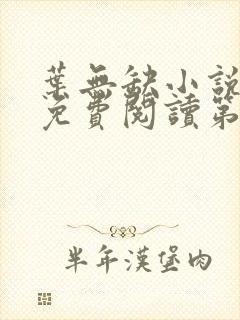 葉無缺小說
免費閱讀第
半年漢堡肉